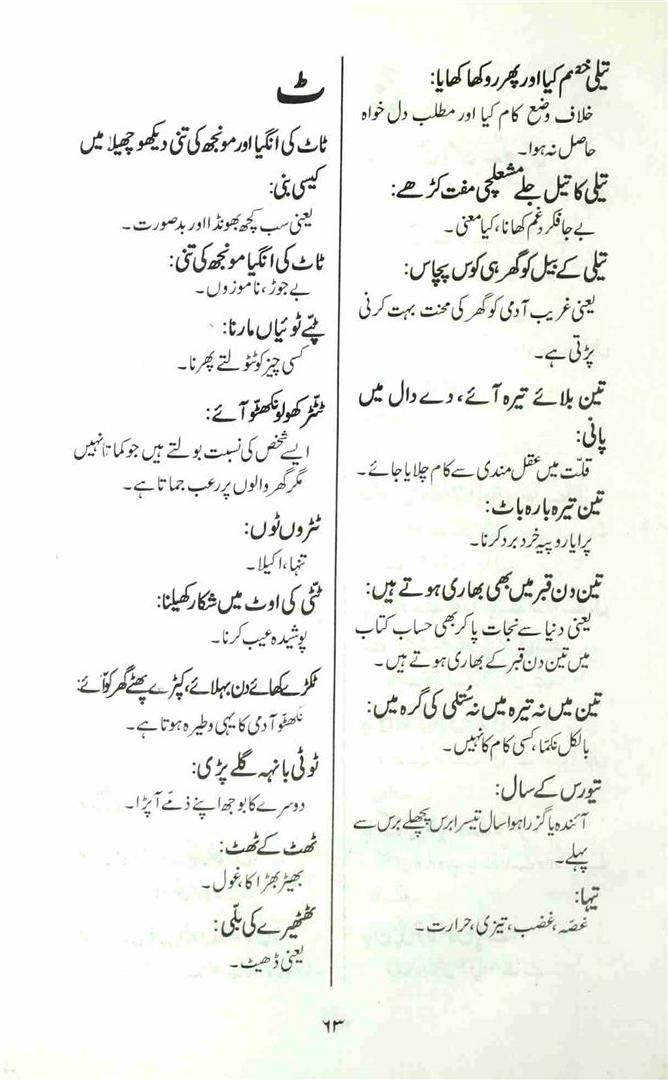 تیلی خصم کیا اور پھر روکھا کھایا:
خلاف وضع کام کیا اور مطلب دل خواہ
حاصل نہ ہوا۔
تیلی کا تیل جلے مشعلچی مفت کڑھے:
بے جا فکر و غم کھانا، کیا معنی۔
تیلی کے بیل کو گھر ہی کوس پچاس:
یعنی غریب آدمی کو گھر کی محنت بہت کرنی
پڑتی ہے۔
تین بلائے تیرہ آئے، دے دال میں
پانی:
قلّت میں عقل مندی سے کام چلایا جائے۔
تین تیرہ بارہ باٹ:
پرایا روپیہ خرد برد کرنا۔
تین دن قبر میں بھی بھاری ہوتے ہیں:
یعنی دنیا سے نجات پا کر بھی حساب کتاب
میں تین دن قبر کے بھاری ہوتے ہیں۔
تین میں نہ تیرہ میں نہ سُتلی کی گرہ میں:
بالکل نکمّا، کسی کام کا نہیں۔
تیورس کے سال:
آئندہ یا گزرا ہوا سال تیسرا برس پچھلے برس سے
پہلے۔
تیہا:
غصّہ، غضب، تیزی، حرارت۔
ٹ
ٹاٹ کی انگیا اور مونجھ کی تنی دیکھو چھیلا میں
کیسی بنی:
یعنی سب کچھ بھونڈا اور بدصورت۔
ٹاٹ کی انگیا مونجھ کی تنی:
بے جوڑ، ناموزوں۔
ٹپّے ٹوئیاں مارنا:
کسی چیز کو ٹٹولتے پھرنا۔
ٹٹّر کھولو نکھٹّو آئے:
ایسے شخص کی نسبت بولتے ہیں جو کماتا نہیں
مگر گھر والوں پر رعب جماتا ہے۔
ٹٹروں ٹوں:
تنہا، اکیلا۔
ٹٹّی کی اوٹ میں شکار کھیلنا:
پوشیدہ عیب کرنا۔
ٹکڑے کھائے دن بہلائے، کپڑے پھٹے گھر کو آئے:
نکھٹّو آدمی کا یہی وطیرہ ہوتا ہے۔
ٹوٹی بانہہ گلے پڑی:
دوسرے کا بوجھ اپنے ذمّے آپڑا۔
ٹھٹ کے ٹھٹ:
بھیڑ بھڑاکا، غول۔
ٹھٹھیرے کی بلّی:
یعنی ڈھیٹ۔
۶۳